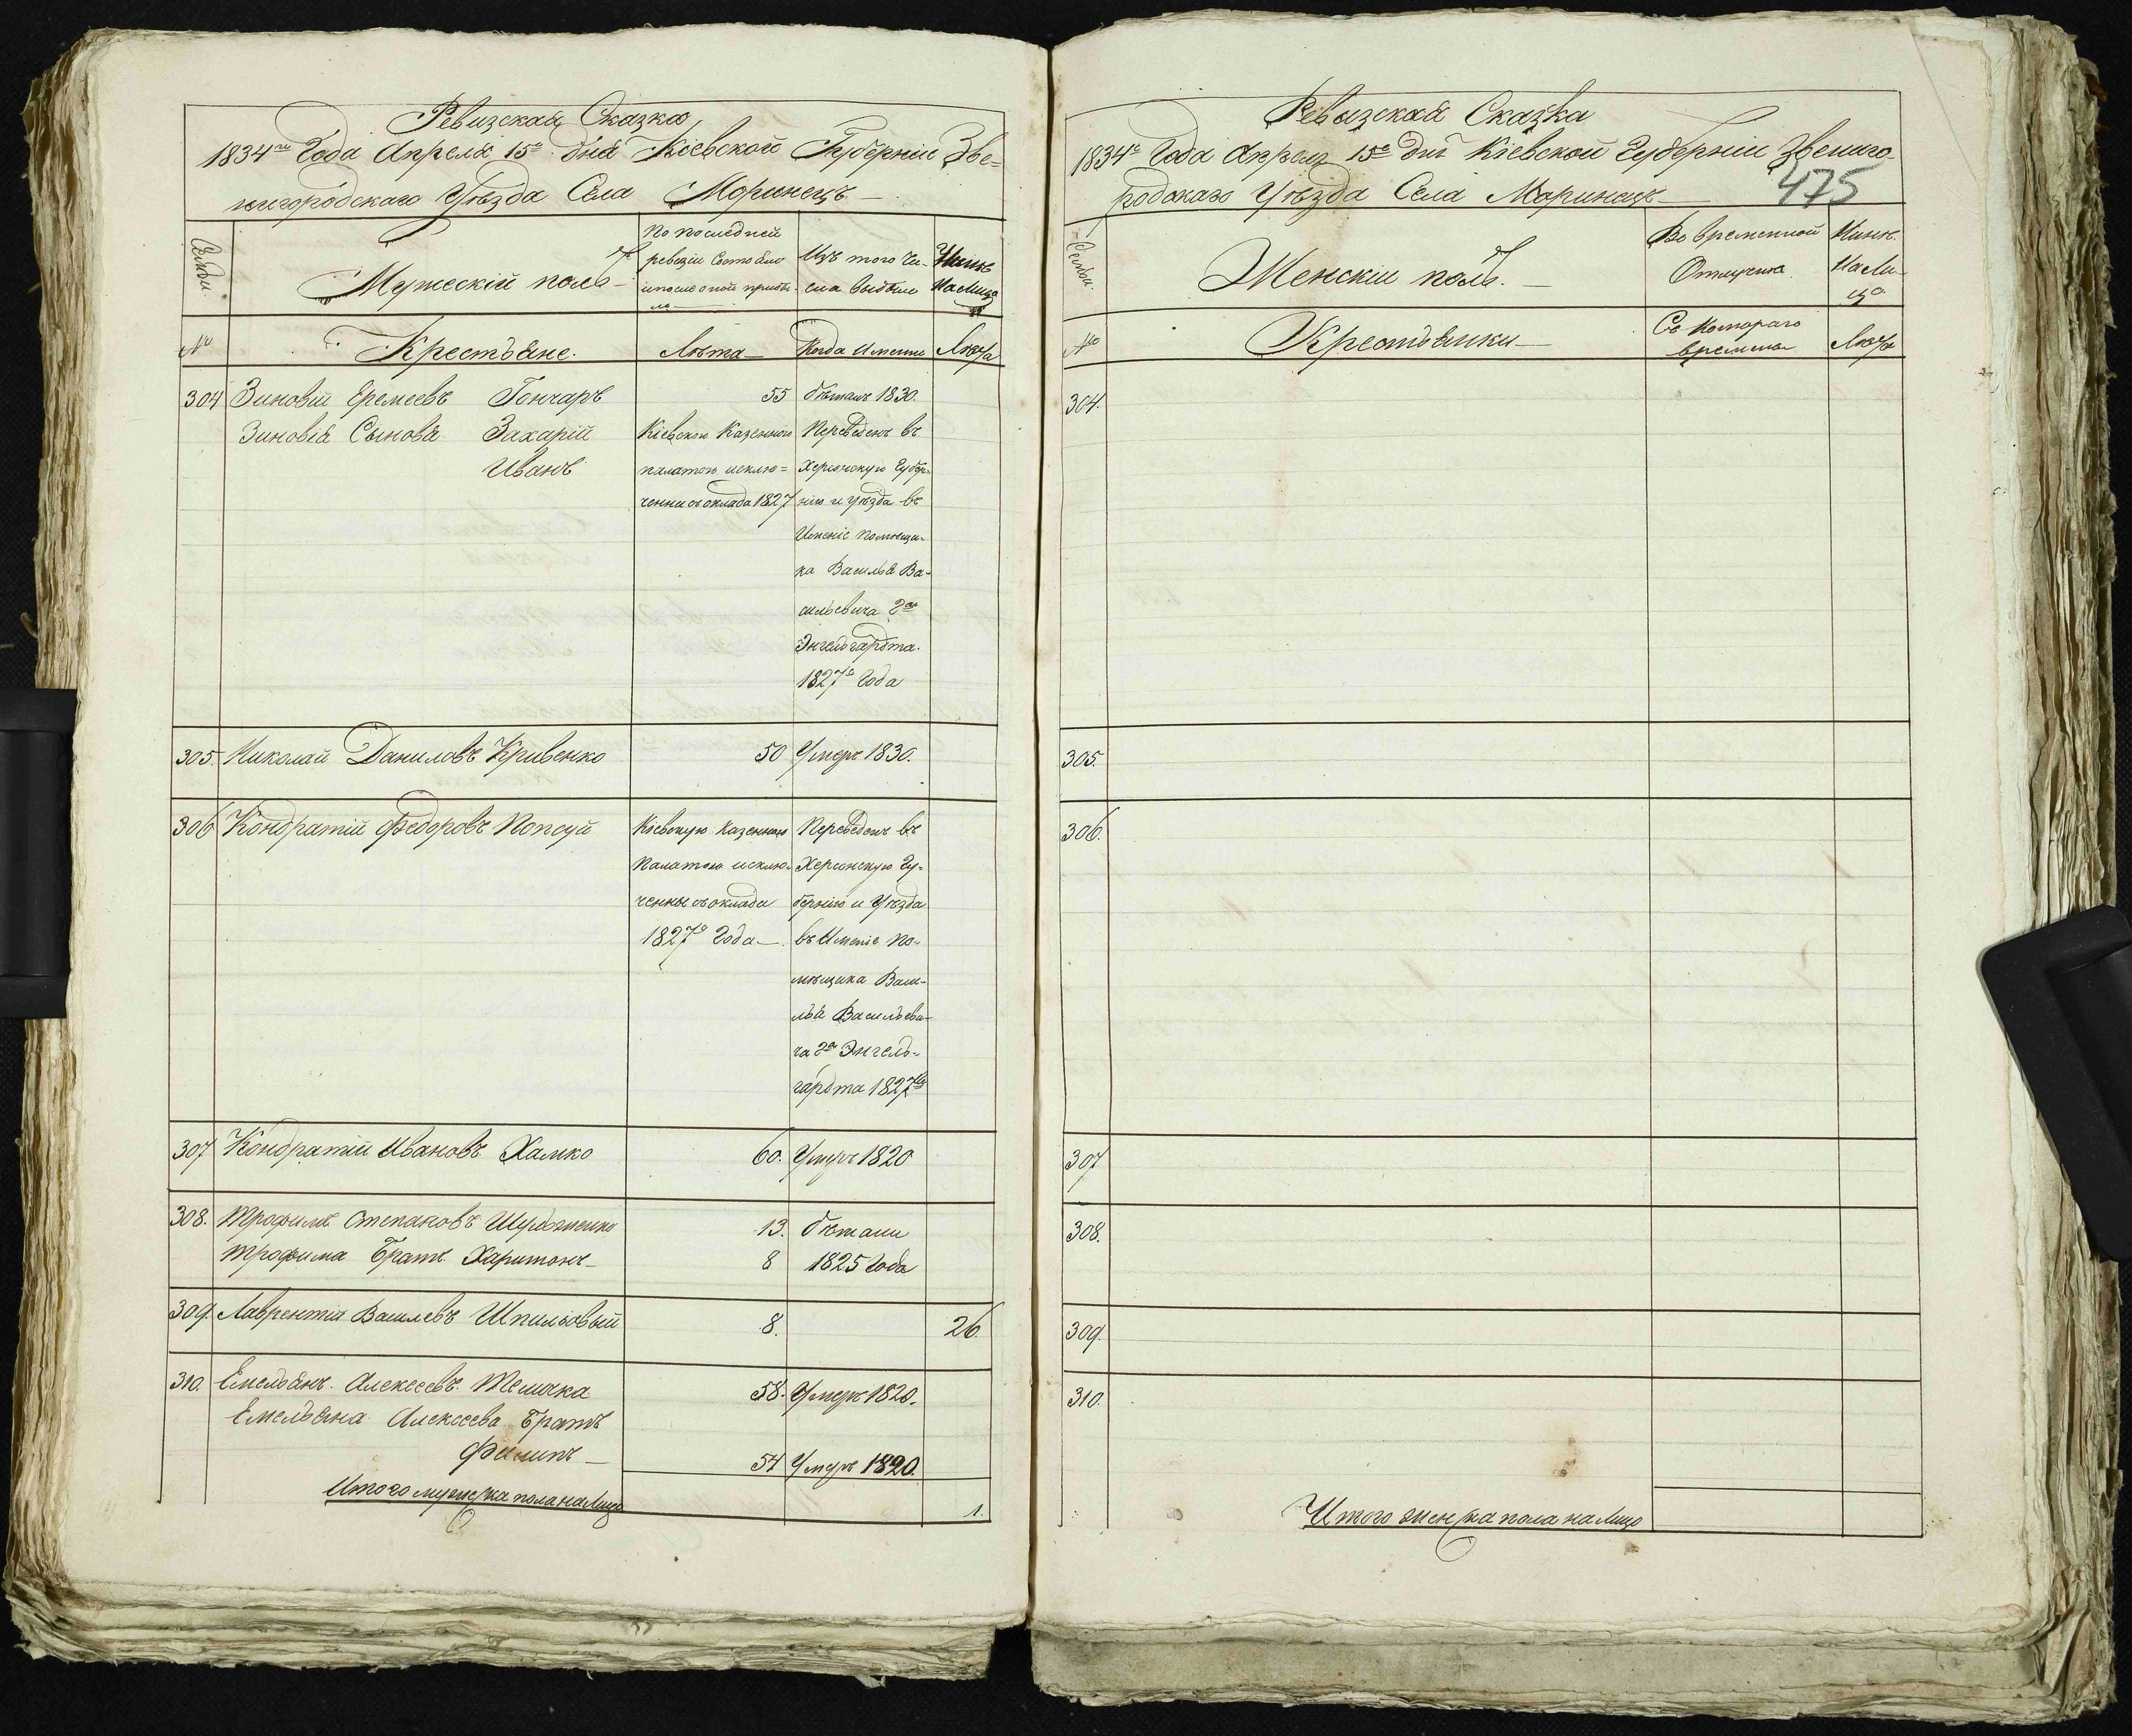 Ревизская Сказка
1834го Года Апреля 15е дня Кіевской Губерніи Зве=
нигородскаго Уѣзда Села Моринецъ
Семьи
Мужескій полъ
По последней
ревизіи Состояло
и после оной прибы-
ло
Изъ того чи-
сла выбыли
Нынѣ
На Лицо
№
Крестьяне.
Лѣта
Когда Именно
Лѣта
304 Зиновій Еремеевъ Гончаръ 55 бѣжалъ 1830.
Зиновія Сыновья Захарій
Иванъ
Кіевскою Казенною
палатою исклю=
ченни съ оклада 1827
Переведенъ въ
Херсонскую Губер-
нію и уѣзда въ
Именіе помѣщи-
ка Василья Ва-
сильевича 2го
Энгельгардта.
1827го Года
305. Николай Даниловъ Кривенко 50 Умеръ 1830.
306 Кондратій Федоровъ Попсуй
Кіевскую казенною
Палатою исклю-
ченны съ оклада
1827го Года
Переведенъ въ
Херсонскую Гу-
бернію и Уѣзда
въ Именіе по-
мѣщика Васи-
лья Васильеви-
ча 2го Энгель-
гардта 1827го
307 Кондратій Ивановъ Халко 60. Умеръ 1820
308. Трофимъ Степановъ Шульженко 13. бѣжали
Трофима Братъ Харитонъ 8 1825 Года
309. Лаврентій Василевъ Шпильовый 8. 26.
310. Емельянъ Алексеевъ Телычка 58. Умеръ 1820.
Емельяна Алексеева Братъ
Филипъ 54 Умеръ 1820.
Итого мужеска пола на Лицо 1.
Ревизская Сказка
1834е Года Апреля 15е дня Кіевской Губерніи Звениго-
родскаго Уѣзда Села Моринецъ
475
Семьи.
Женскій полъ.
Во временной
Отлучкѣ
Нынѣ
На Ли-
цо.
№
Крестьянки
Съ Котораго
времени
Лѣта
304.
305.
306.
307
308.
309.
310.
Итого женска пола на Лицо